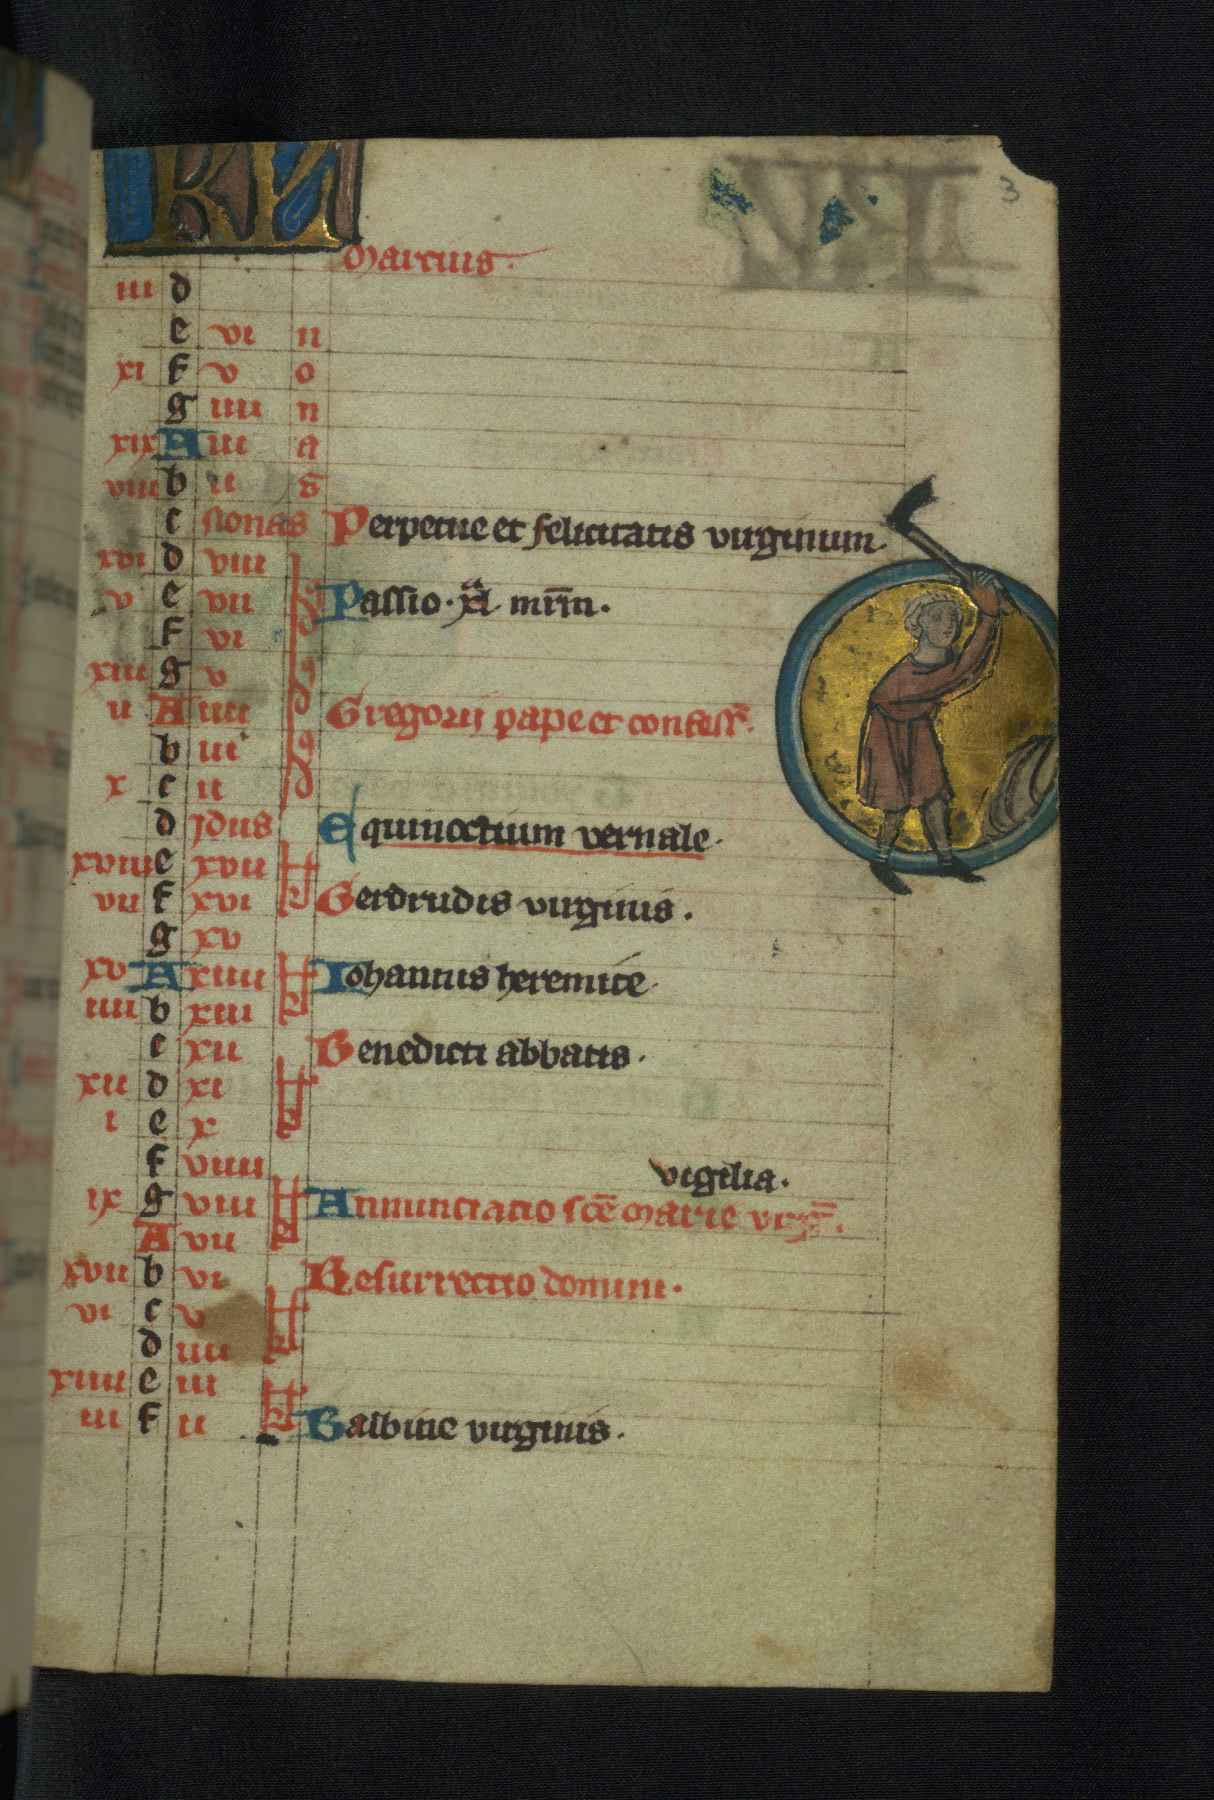 KL 3
Marcius.
iii d
e vi n
xi f v o
g iiii n
xix A iii a
viii b ii s
c nonas Perpetue et felicitatis virginum.
xvi d viii
v e vii Passio · xl · mr̄m.
f vi
xiii g v
ii A iiii Gregorii pape et confess̄.
b iii
x c ii
d jdus Equinoctium vernale.
xviii e xvii kl
vii f xvi Gerdrudis virginis.
g xv
xv A xiiii kl Iohannis heremite.
iiii b xiii
c xii Benedicti abbatis.
xii d xi kl
i e x
f viiii vigilia.
ix g viii kl Annunciatio sc̄e marie virḡ.
A vii
xvii b vi Resurrectio domini.
vi c v kl
d iiii
xiiii e iii kl
iii f ii Balbine virginis.